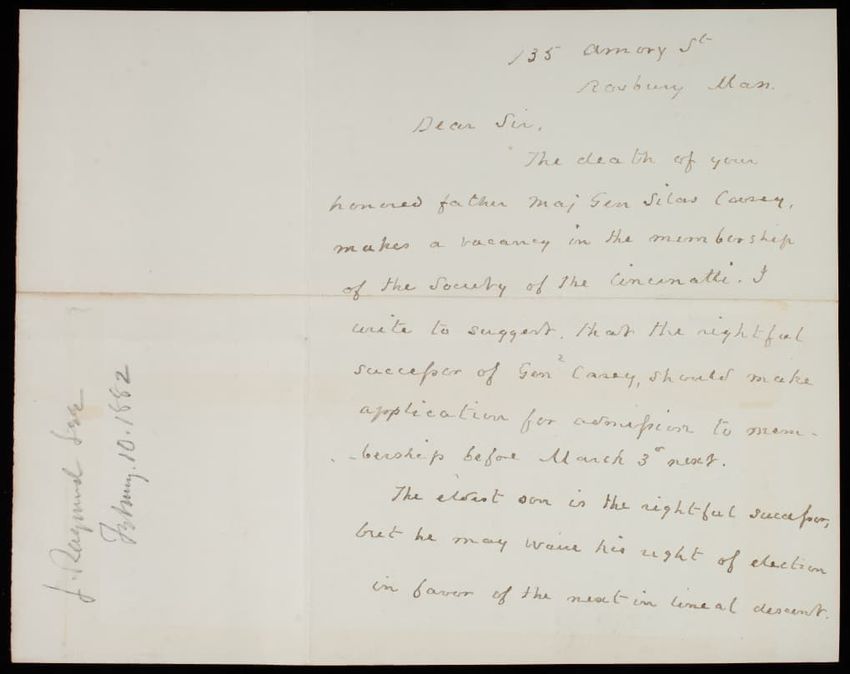 135 Amory St
Roxbury Mass.
Dear Sir,
The death of your
honored father Maj Gen Silas Casey,
makes a vacancy in the membership
of the Society of the Cincinatti. I
write to suggest, that the rightful
successor of Genl Casey, should make
application for admission to mem-
-bership before March 3d next.
The eldest son is the rightful successor,
but he may waive his right of election
in favor of the next in lineal descent.
J. Raymond Lee
February. 10. 1882